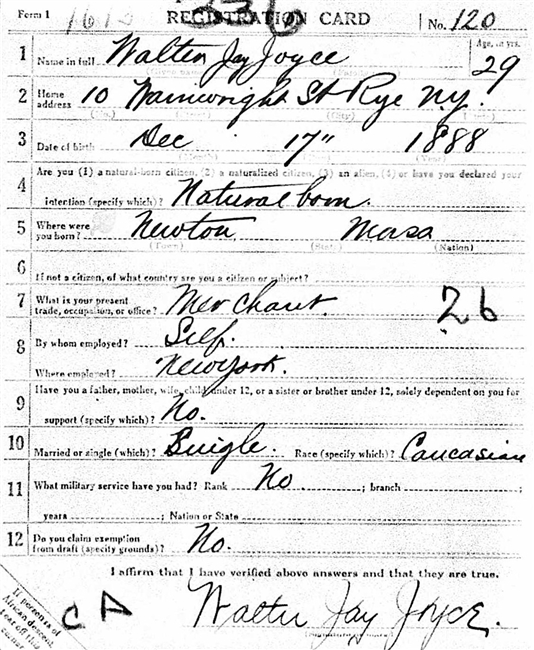 Form 1 1612 336 REGISTRATION CARD No. 120
1 Name in full Walter Jay Joyce Age, in yrs. 29
(Given name) (Family name)
2 Home address 10 Wainwright St Rye N.Y.
(No.) (Street) (City) (State)
3 Date of birth Dec 17" 1888
(Month) (Day) (Year)
4 Are you (1) a natural-born citizen, (2) a naturalized citizen, (3) an alien, (4) or have you declared your
intention (specify which)? Natural born.
5 Where were you born? Newton Mass
(Town) (State) (Nation)
6 If not a citizen, of what country are you a citizen or subject?
7 What is your present trade, occupation, or office? Merchant. 26
8 By whom employed? Self.
Where employed? New York.
9 Have you a father, mother, wife, child under 12, or a sister or brother under 12, solely dependent on you for
support (specify which)? No.
10 Married or single (which)? Single. Race (specify which)? Caucasian
11 What military service have you had? Rank No ; branch ;
years ; Nation or State
12 Do you claim exemption from draft (specify grounds)? No.
I affirm that I have verified above answers and that they are true.
If person is of
African descent,
tear off this
corner
CA
Walter Jay Joyce.